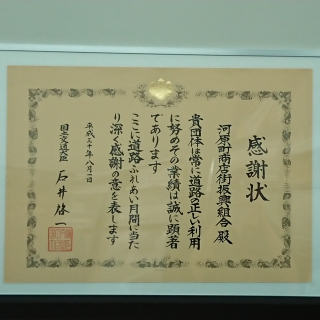 感謝状
河原町商店街振興組合 殿
貴団体は常に道路の正しい利用
に努めその業績は誠に顕著
であります
ここに道路ふれあい月間に当た
り深く感謝の意を表します
平成三十年八月一日
国土交通大臣 石井啓一